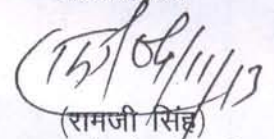 06/11/13
(रामजी सिंह)